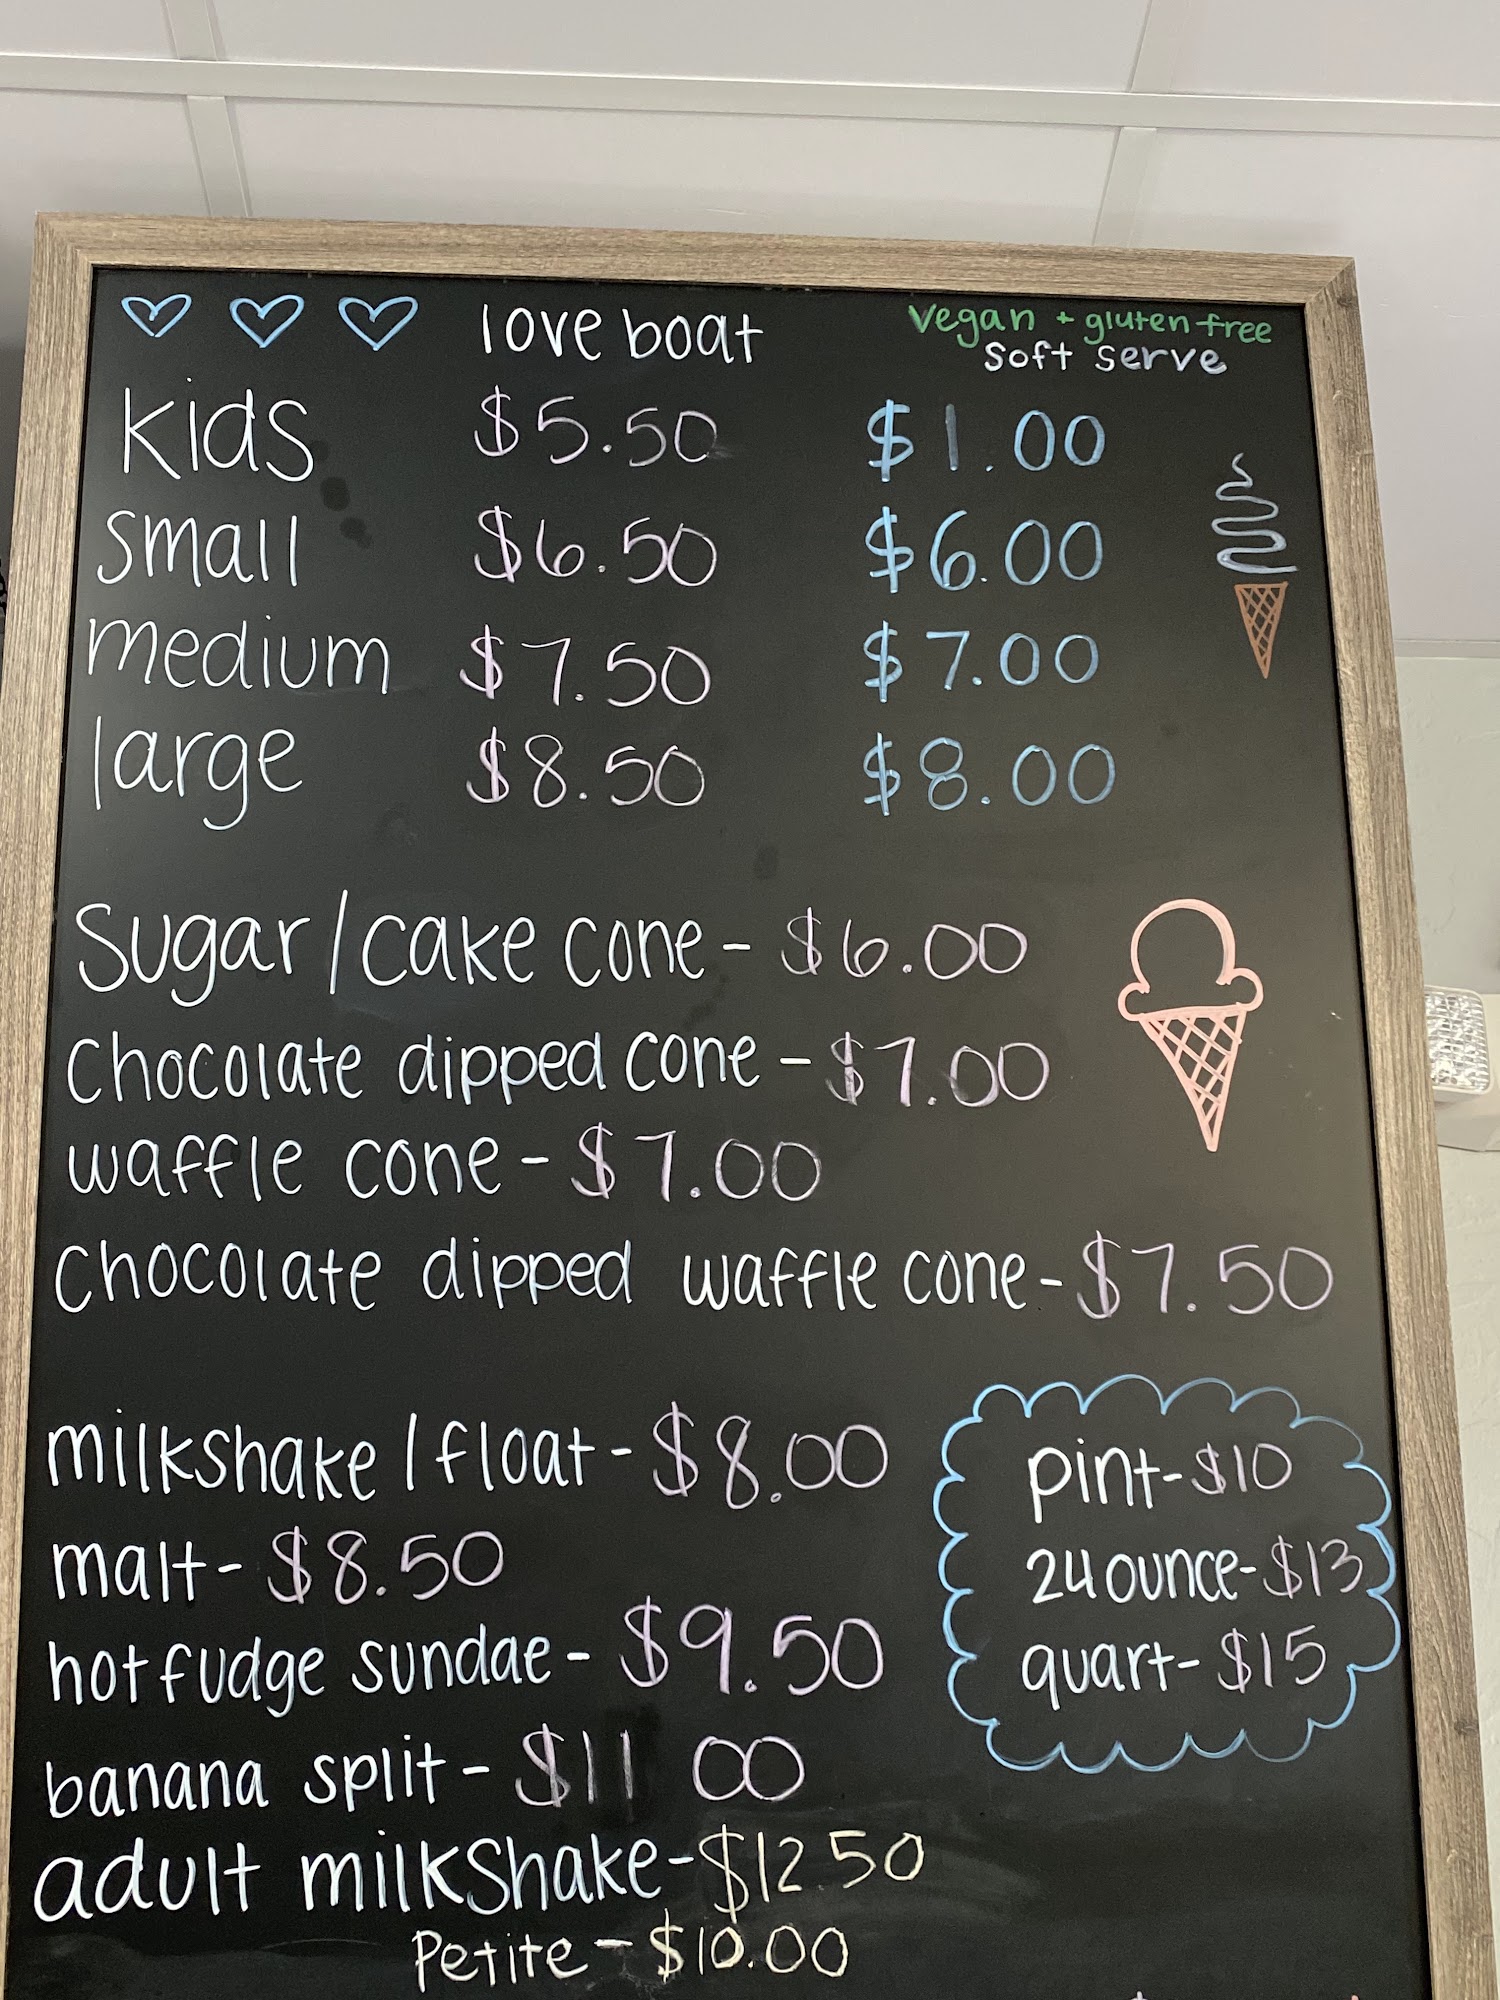 love boat
vegan + gluten free
soft serve
kids $5.50 $1.00
small $6.50 $6.00
medium $7.50 $7.00
large $8.50 $8.00
Sugar/cake cone - $6.00
Chocolate dipped cone - $7.00
waffle cone - $7.00
Chocolate dipped waffle cone - $7.50
milkshake / float - $8.00
malt - $8.50
hot fudge sundae - $9.50
banana split - $11 00
adult milkshake - $12.50
Petite - $10.00
pint - $10
24 ounce - $13
quart - $15